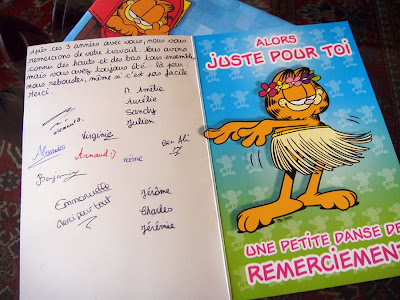 Après ces 3 années avec vous, nous vous
remercions de votre travail. Nous avons
connu des hauts et des bas tous ensemble,
mais vous avez toujours été là pour
nous rebooster, même si c'est pas facile
Merci
N. Amélie
Aurélie
Sandy
Julien
Virginie
Alexandra
Armand :)
noémie
Ben Ali
Benjamin
Emmanuelle
Merci pour tout
Jérôme
Charles
Jérémie
ALORS
JUSTE POUR TOI
UNE PETITE DANSE DE
REMERCIEMENT